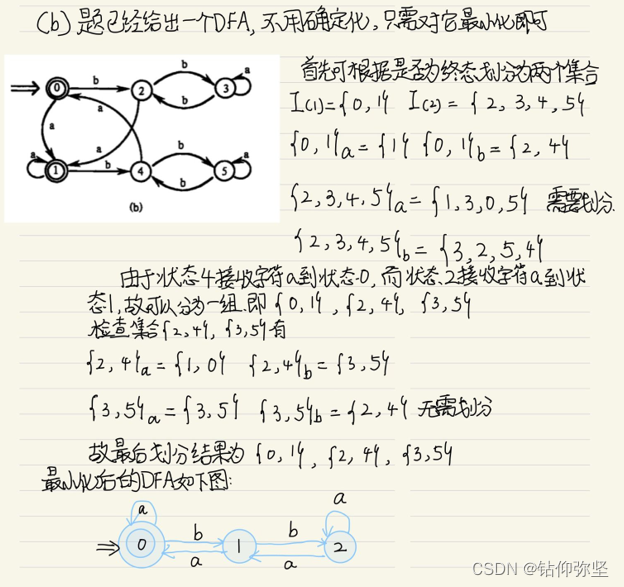 (b) 题已经给出一个DFA, 不用确定化, 只需对它最小化即可
首先可根据是否为终态划分为两个集合
I(1)={0,1} I(2)={2,3,4,5}
{0,1}a={1} {0,1}b={2,4}
{2,3,4,5}a={1,3,0,5} 需要划分.
{2,3,4,5}b={3,2,5,4}
0 b 2 b 3 a
b
a a a
a 1 b 4 b 5 a
b
(b)
由于状态4接收字符a到状态0, 而状态2接收字符a到状
态1, 故可以分为一组.即{0,1}, {2,4}, {3,5}
检查集合{2,4}, {3,5}有
{2,4}a={1,0} {2,4}b={3,5}
{3,5}a={3,5} {3,5}b={2,4} 无需划分
故最后划分结果为{0,1}, {2,4}, {3,5}
最小化后的DFA如下图:
a a
0 b 1 b 2
a a
CSDN @钻仰弥坚